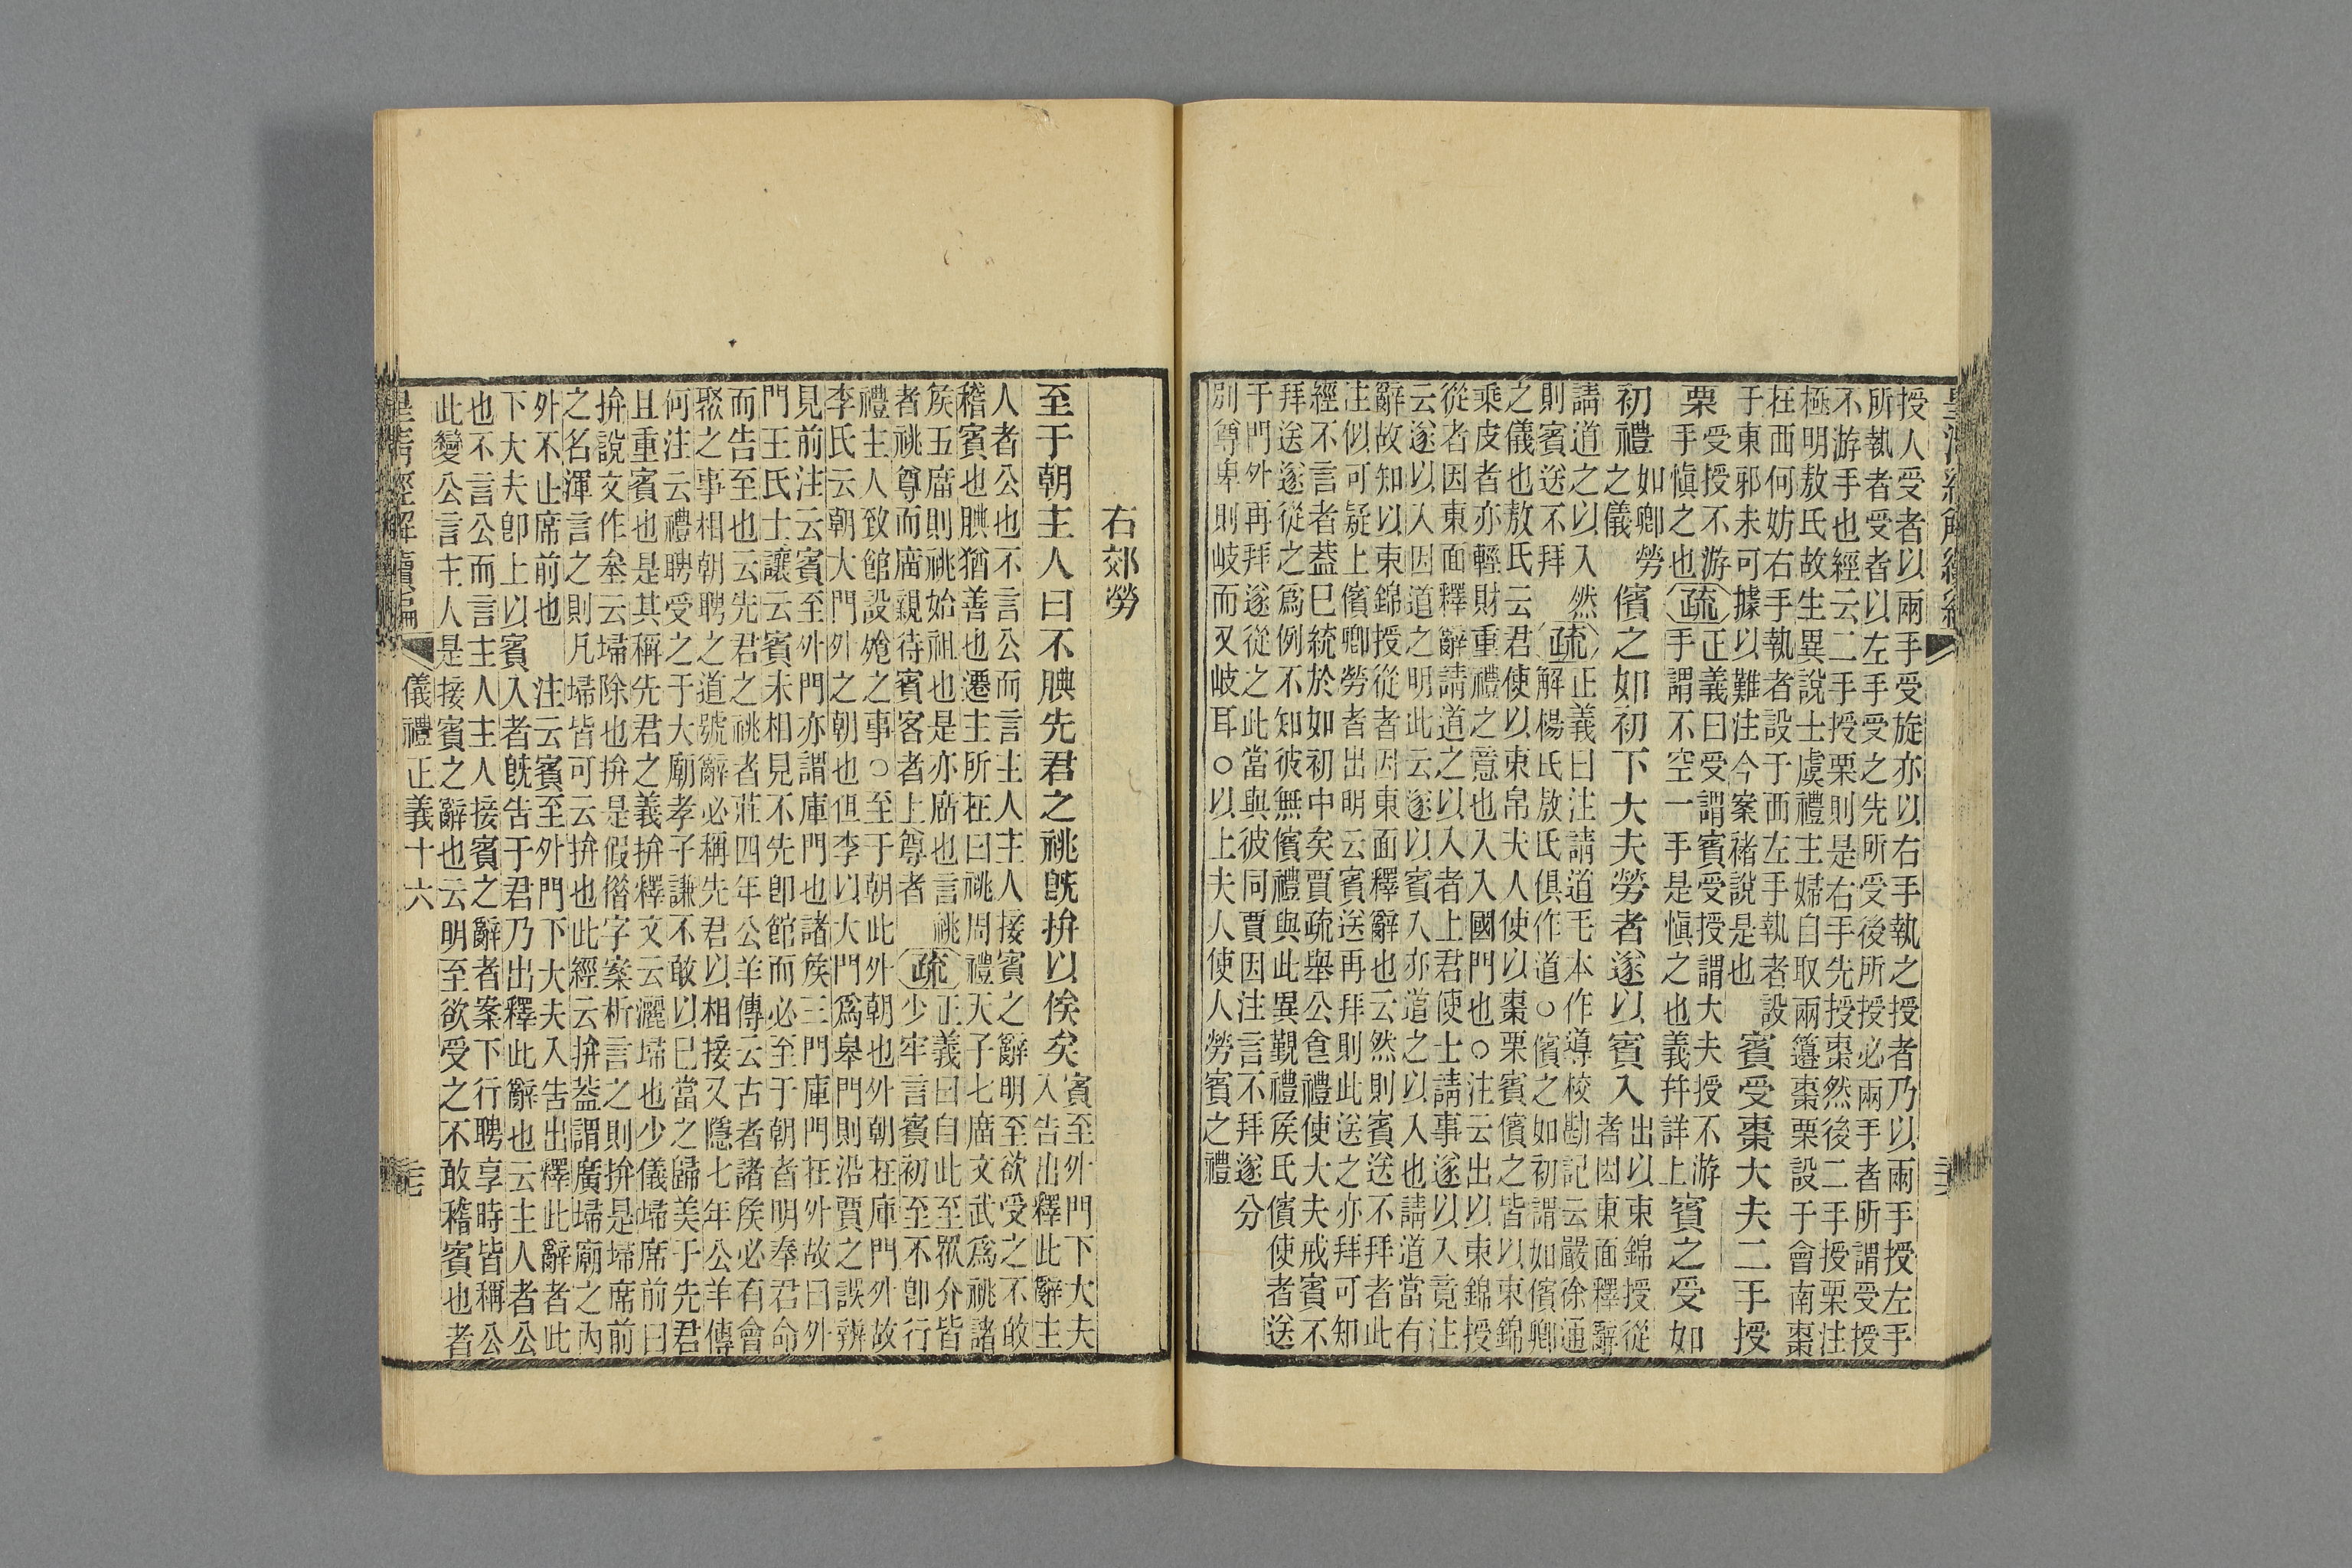 授人受者以兩手受旋亦以右手執之授者乃以兩手授左手
所執者受者以左手受之先所受後所授必兩手者所謂受授
不游手也經云二手授栗則是右手先授棗然後二手授栗注
極明敖氏故生異說士虞禮主婦自取兩籩棗栗設于會南棗
在西何妨右手執者設于西左手執者設
于東邪未可據以難注今案褚說是也
賓受棗大夫二手授
栗
受授不游
手愼之也
疏
正義曰受謂賓受授謂大夫授不游
手謂不空一手是愼之也義幷詳上
賓之受如
初禮
如卿勞
之儀
儐之如初下大夫勞者遂以賓入
出以束錦授從
者因東面釋辭
請道之以入然
則賓送不拜
疏
正義曰注請道毛本作導校勘記云嚴徐通
解楊氏敖氏俱作道○儐之如初謂如儐卿
之儀也敖氏云君使以束帛夫人使以棗栗賓儐之皆以束錦
乘皮者亦輕財重禮之意也入入國門也○注云出以束錦授
從者因東面釋辭請道之以入者上君使士請事遂以入竟注
云遂以入因道之明此云遂以賓入亦道之以入也請道當有
辭故知以束錦授從者因東面釋辭也云然則賓送不拜者此
注似可疑上儐卿勞者出明云賓送再拜則此送之亦拜可知
經不言者葢已統於如初中矣賈疏舉公食禮使大夫戒賓不
拜送遂從之爲例不知彼無儐禮與此異覲禮矦氏儐使者送
于門外再拜遂從之此當與彼同賈因注言不拜遂分
別尊卑則岐而又岐耳○以上夫人使人勞賓之禮
右郊勞
至于朝主人曰不腆先君之祧旣拚以俟矣
賓至外門下大夫
入告出釋此辭主
人者公也不言公而言主人主人接賓之辭明至欲受之不敢
稽賓也腆猶善也遷主所在曰祧周禮天子七廟文武爲祧諸
矦五廟則祧始祖也是亦廟也言祧
者祧尊而廟親待賓客者上尊者
疏
正義曰自此至衆介皆
少牢言賓初至不卽行
禮主人致館設飧之事○至于朝此外朝也外朝在庫門外故
李氏云朝大門外之朝也但李以大門爲皋門則沿賈之誤辨
見前注云賓至外門亦謂庫門也諸矦三門庫門在外故曰外
門王氏士讓云賓未相見不先卽館而必至于朝者明奉君命
而告至也云先君之祧者莊四年公羊傳云古者諸矦必有會
聚之事相朝聘之道號辭必稱先君以相接又隱七年公羊傳
何注云禮聘受之于大廟孝子謙不敢以已當之歸美于先君
且重賓也是其稱先君之義拚釋文云灑埽也少儀埽席前曰
拚說文作𡊅云埽除也拚是假借字案析言之則拚是埽席前
之名渾言之則凡埽皆可云拚也此經云拚葢謂廣埽廟之內
外不止席前也　注云賓至外門下大夫入告出釋此辭者此
下大夫卽上以賓入者旣告于君乃出釋此辭也云主人者公
也不言公而言主人主人接賓之辭者案下行聘享時皆稱公
此變公言主人是接賓之辭也云明至欲受之不敢稽賓也者
儀禮正義十六